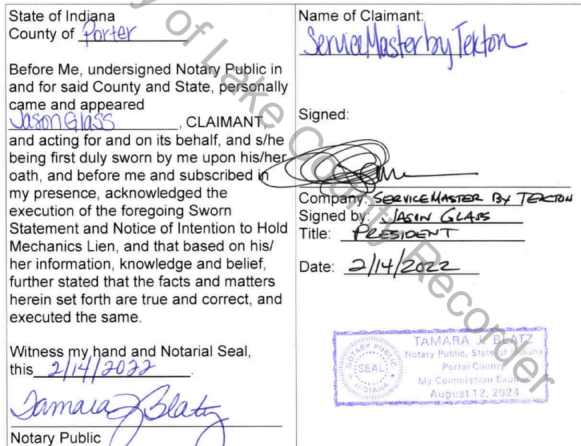 State of Indiana
County of Porter
Before Me, undersigned Notary Public in
and for said County and State, personally
came and appeared
Jason Glass, CLAIMANT,
and acting for and on its behalf, and s/he
being first duly sworn by me upon his/her
oath, and before me and subscribed in
my presence, acknowledged the
execution of the foregoing Sworn
Statement and Notice of Intention to Hold
Mechanics Lien, and that based on his/
her information, knowledge and belief,
further stated that the facts and matters
herein set forth are true and correct, and
executed the same.
Witness my hand and Notarial Seal,
this 2/14/2022.
Tamara J Blatz
Notary Public
Name of Claimant:
ServiceMaster by Tekton
Signed:
Company: SERVICEMASTER BY TEKTON
Signed by: JASON GLASS
Title: PRESIDENT
Date: 2/14/2022
TAMARA J. BLATZ
Notary Public, State of Indiana
Porter County
My Commission Expires
August 12, 2024
NOTARY PUBLIC
SEAL
INDIANA
of Lake County Recorder